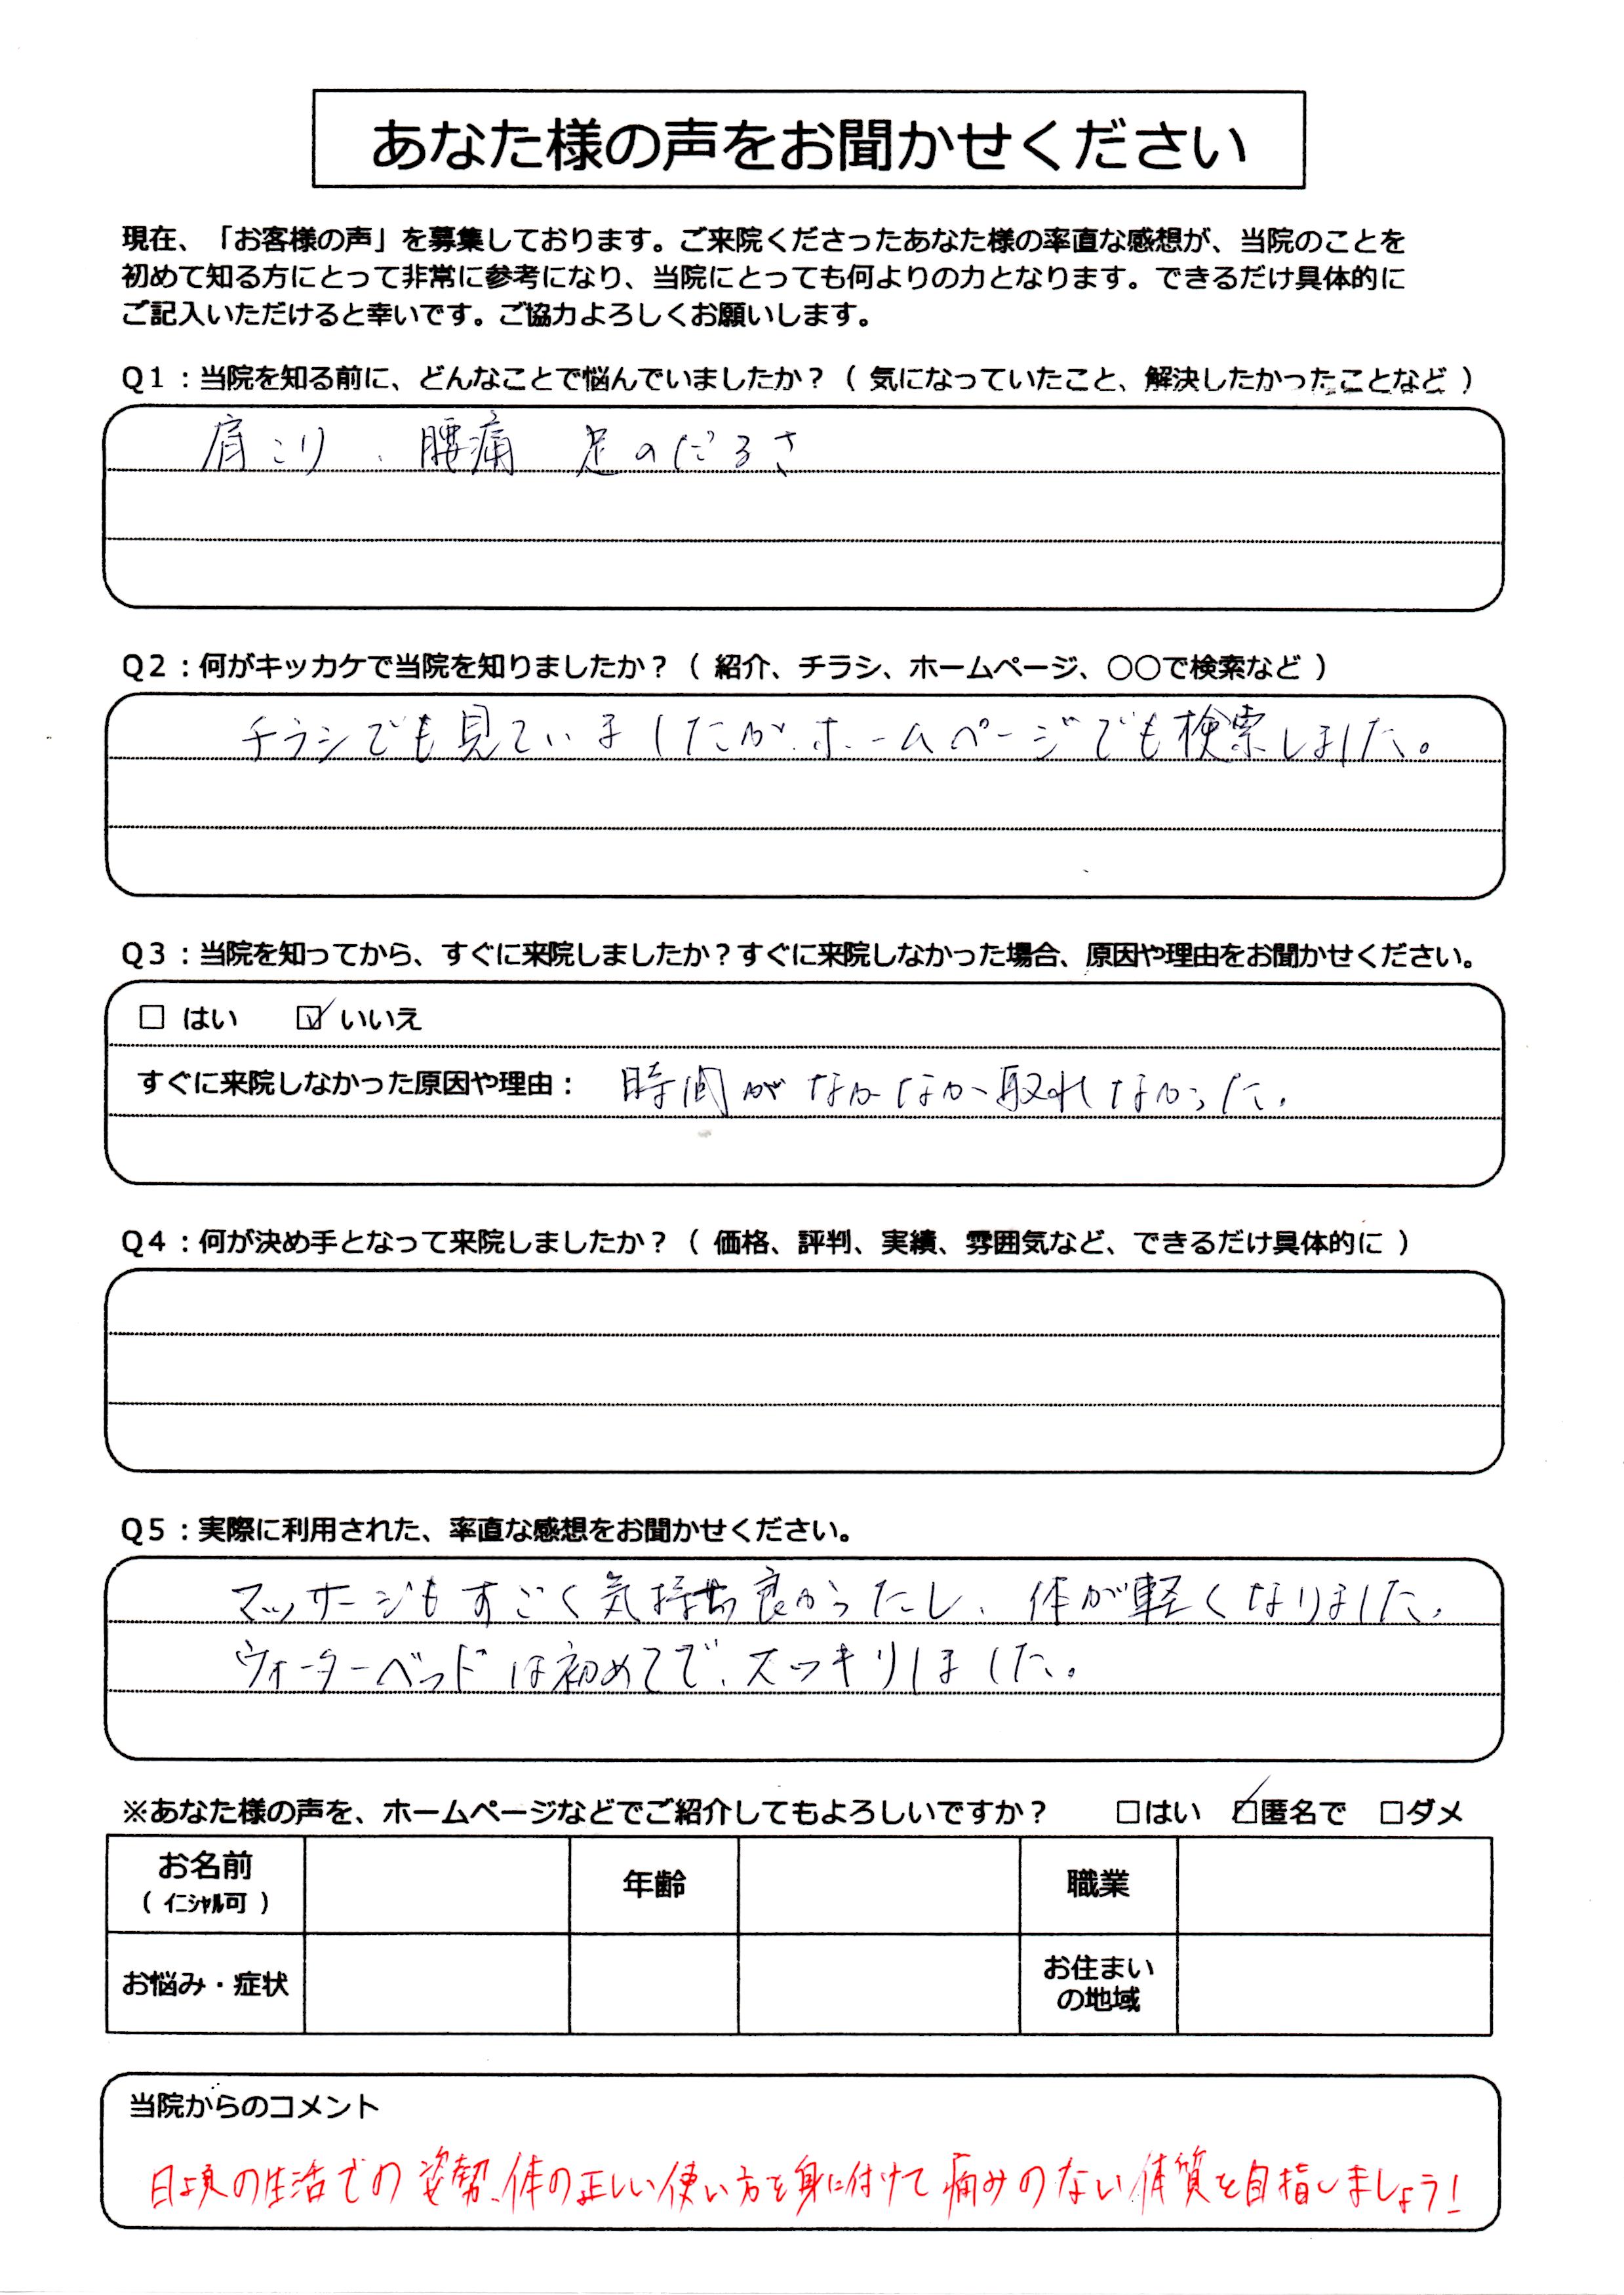 あなた様の声をお聞かせください
現在、「お客様の声」を募集しております。ご来院くださったあなた様の率直な感想が、当院のことを
初めて知る方にとって非常に参考になり、当院にとっても何よりの力となります。できるだけ具体的に
ご記入いただけると幸いです。ご協力よろしくお願いします。
Q1：当院を知る前に、どんなことで悩んでいましたか？（ 気になっていたこと、解決したかったことなど ）
肩こり、腰痛 足のだるさ
Q2：何がキッカケで当院を知りましたか？（ 紹介、チラシ、ホームページ、○○で検索など ）
チラシでも見ていましたが、ホームページでも検索しました。
Q3：当院を知ってから、すぐに来院しましたか？すぐに来院しなかった場合、原因や理由をお聞かせください。
□ はい ☑ いいえ
すぐに来院しなかった原因や理由： 時間がなかなか取れなかった。
Q4：何が決め手となって来院しましたか？（ 価格、評判、実績、雰囲気など、できるだけ具体的に ）
Q5：実際に利用された、率直な感想をお聞かせください。
マッサージもすごく気持ち良かったし、体が軽くなりました。
ウォーターベッドは初めてで、スッキリしました。
※あなた様の声を、ホームページなどでご紹介してもよろしいですか？ □はい ☑匿名で □ダメ
お名前 年齢 職業
（ イニシャル可 ）
お悩み・症状 お住まい
の地域
当院からのコメント
日頃の生活での姿勢、体の正しい使い方を身に付けて痛みのない体質を目指しましょう！